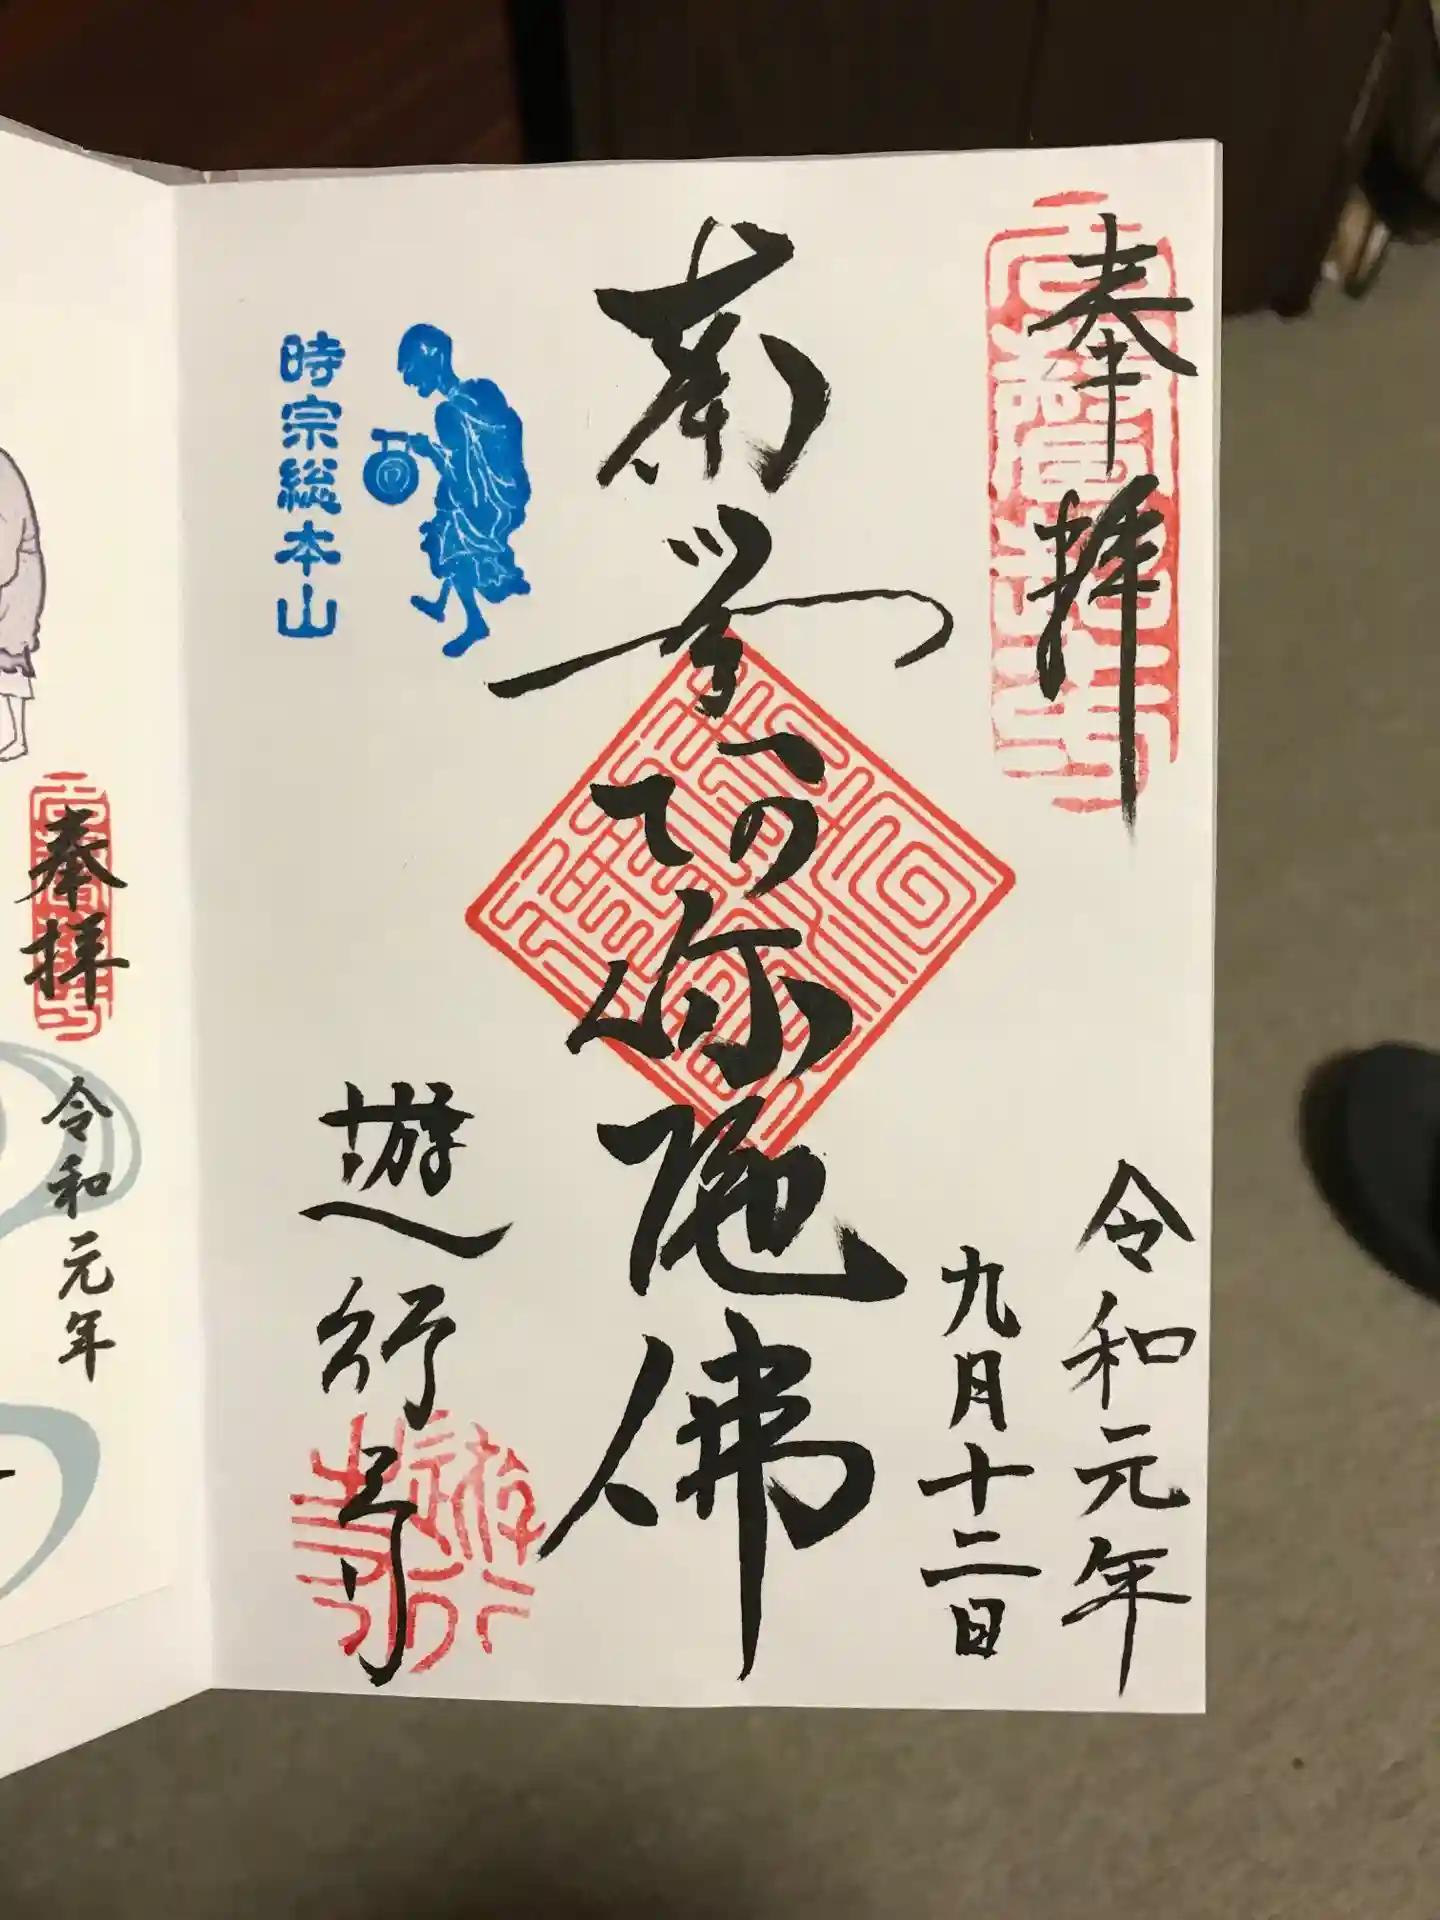 奉拝
令和元年
九月十二日
南無阿弥陀佛
時宗総本山
遊行寺
奉拝
令和元年